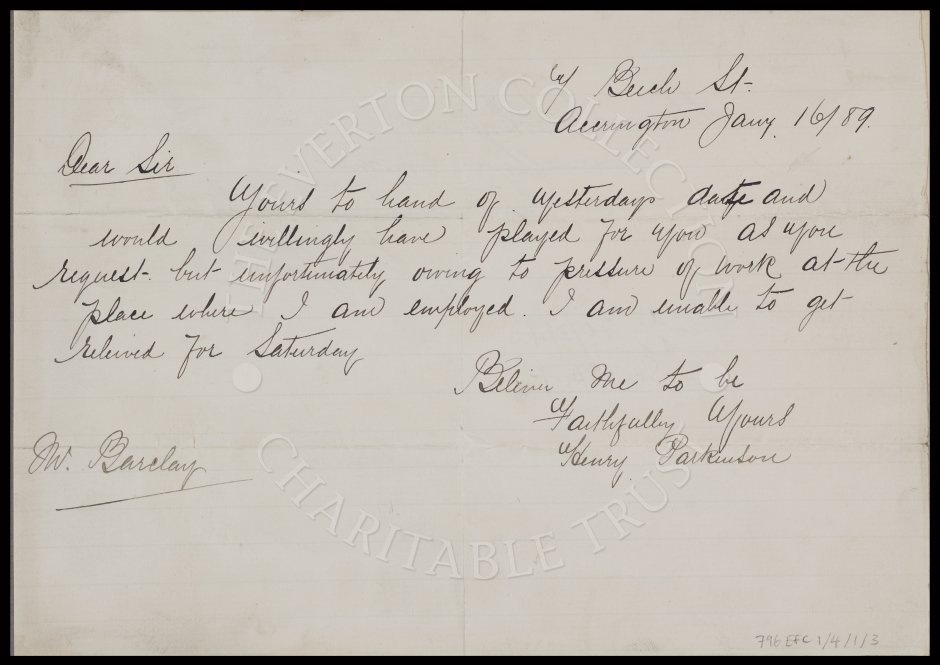 Beech St.
Accrington Jany. 16/89.
Dear Sir
Yours to hand of yesterdays date and
would willingly have played for you as you
request but unfortunately owing to pressure of work at the
place where I am employed. I am unable to get
releived for Saturday
Beleive me to be
Faithfully Yours
Henry Parkinson
Mr. Barclay
THE EVERTON COLLECTION
CHARITABLE TRUST
796 EFC 1/4/1/3